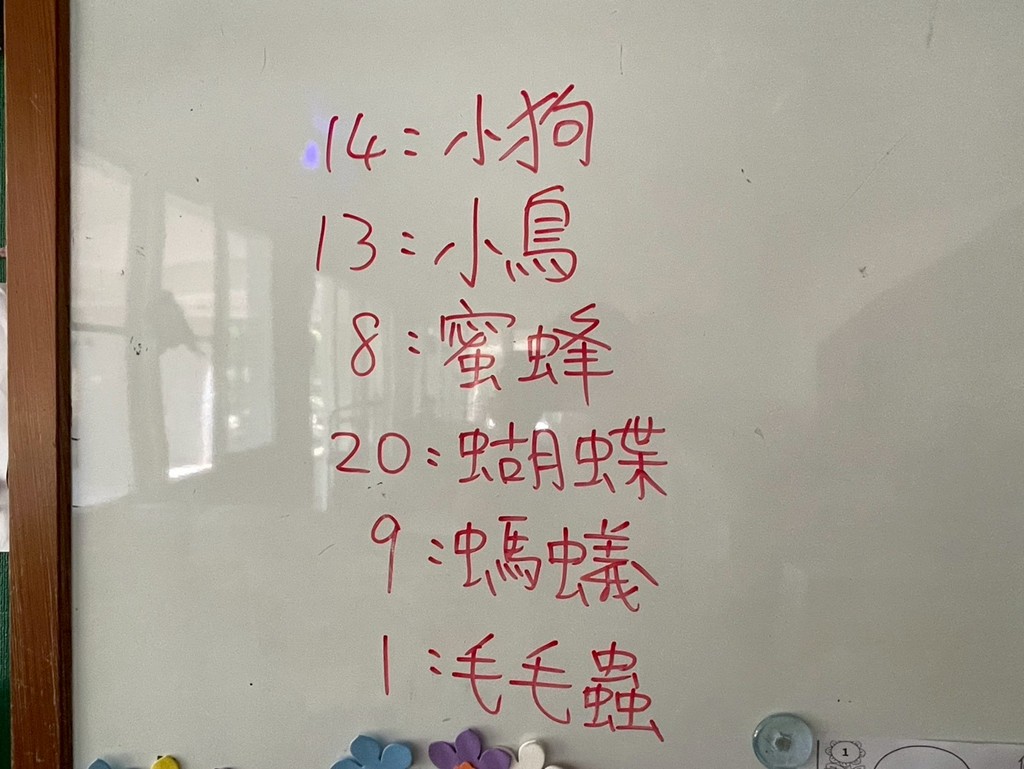 14：小狗
13：小鳥
8：蜜蜂
20：蝴蝶
9：螞蟻
1：毛毛蟲
1